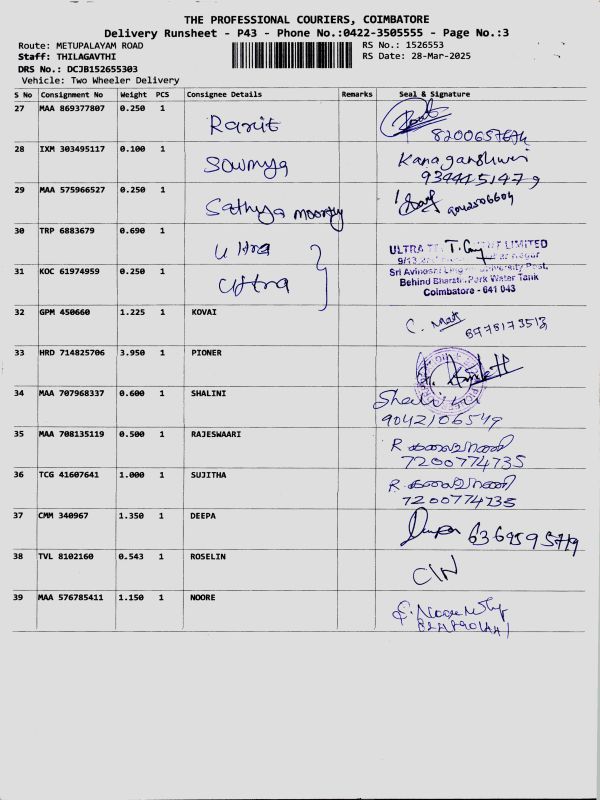 THE PROFESSIONAL COURIERS, COIMBATORE
Delivery Runsheet - P43 - Phone No.:0422-3505555 - Page No.:3
Route: METUPALAYAM ROAD RS No.: 1526553
Staff: THILAGAVTHI RS Date: 28-Mar-2025
DRS No.: DCJB152655303
Vehicle: Two Wheeler Delivery
S No Consignment No Weight PCS Consignee Details Remarks Seal & Signature
27 MAA 869377807 0.250 1 Ranit
8200657674
28 IXM 303495117 0.100 1 Sowmya
29 MAA 575966527 0.250 1 Sathya moorthy
9042506604
30 TRP 6883679 0.690 1 Ultra
ULTRA LIMITED
31 KOC 61974959 0.250 1 Ultra
Sri Avinashi University Post,
Behind Bharati Park Water Tank
Coimbatore - 641 043
32 GPM 450660 1.225 1 KOVAI
33 HRD 714825706 3.950 1 PIONER
34 MAA 707968337 0.600 1 SHALINI Shalini
9042106549
35 MAA 708135119 0.500 1 RAJESWAARI
7200774735
36 TCG 41607641 1.000 1 SUJITHA
7200774735
37 CMM 340967 1.350 1 DEEPA
38 TVL 8102160 0.543 1 ROSELIN
39 MAA 576785411 1.150 1 NOORE